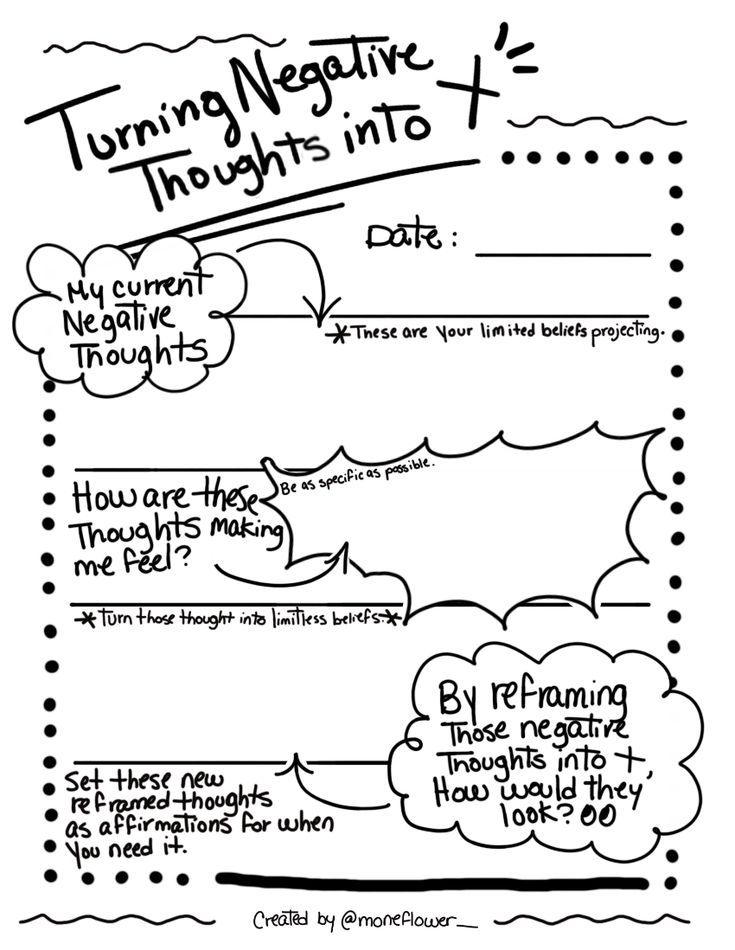 Turning Negative
Thoughts into +
Date:
My current
Negative
Thoughts
*These are your limited beliefs projecting.
Be as specific as possible.
How are these
Thoughts making
me feel?
*Turn those thought into limitless beliefs.*
By reframing
Those negative
Thoughts into +,
How would they
look?
Set these new
reframed thoughts
as affirmations for when
you need it.
Created by @moneflower__